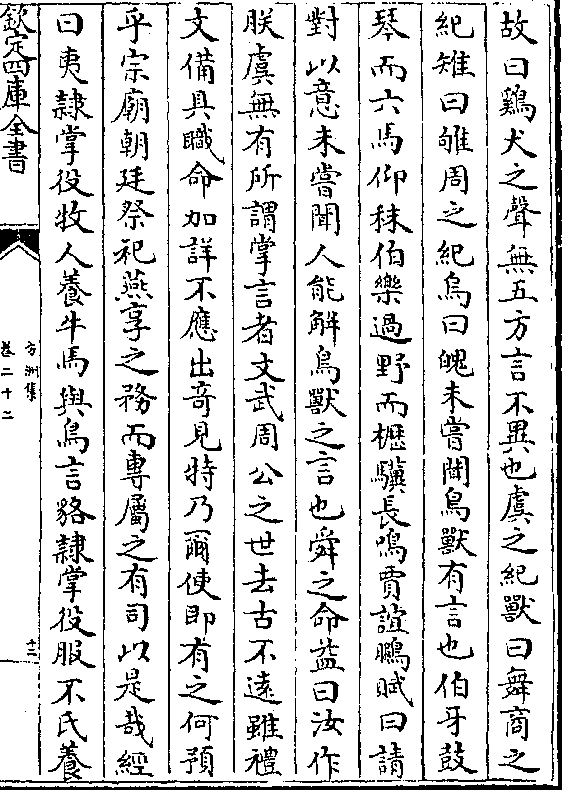 故曰鷄犬之聲無五方言不異也虞之紀獸曰舞商之
紀雉曰雊周之紀烏曰魄未嘗聞鳥獸有言也伯牙鼓
琴而六馬仰秣伯樂過野而櫪驥長鳴賈誼鵩賦曰請
對以意未嘗聞人能解鳥獸之言也舜之命益曰汝作
朕虞無有所謂掌言者文武周公之世去古不遠雖禮
文備具職命加詳不應出竒見特乃爾使即有之何預
乎宗廟朝廷祭祀燕享之務而專屬之有司以是哉經
曰夷隷掌役牧人養牛馬與鳥言貉隷掌役服不氏養
欽定四庫全書
方洲集
卷二十二
十三